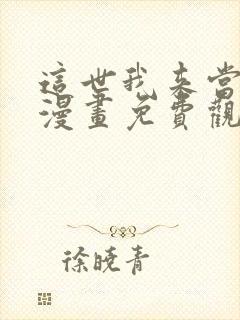 這世我来當
漫畫免費觀
徐曉青